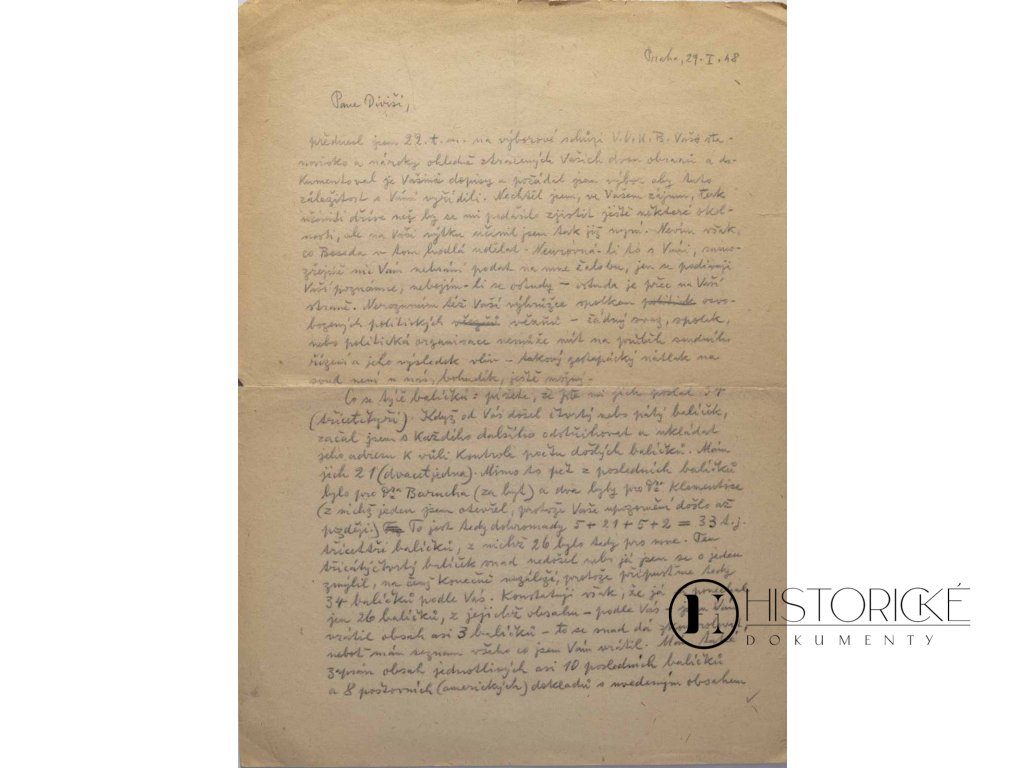 Praha, 29. I. 48
Pane Diviši,
přednesl jsem 22. t. m. na výborové schůzi V. U. B. Vaše sta-
novisko a nároky ohledně ztracených Vašich dvou obrazů a do-
kumentoval je Vašimi dopisy a požádal jsem výbor aby tuto
záležitost s Vámi vyřídili. Nechtěl jsem, ve Vašem zájmu, tak
učiniti dříve než by se mi podařilo zjistit ještě některé okol-
nosti, ale na Vaši výtku učinil jsem tak již nyní. Nevím však,
co Beseda v tom hodlá udělat. Neurovná-li to s Vámi, samo-
zřejmě nic Vám nebrání podat na mne žalobu, jen se podivuji
Vaší poznámce, nebojím-li se ostudy – ostuda je přec na Vaší
straně. Nerozumím též Vaší výhrůžce spolkem politick osvo-
bozených politických vězňů vězňů – žádný svaz, spolek,
nebo politická organisace nemůže mít na průběh soudního
řízení a jeho výsledek vliv – takový gestapácký nátlak na
soud není u nás, bohudík, ještě možný.
Co se týče balíčků: píšete, že jste mi jich poslal 34
(třicetčtyři). Když od Vás došel čtvrtý nebo pátý balíček,
začal jsem s každého dalšího odstřihovat a ukládat
jeho adresu k vůli kontrole počtu došlých balíčků. Mám
jich 21 (dvacetjedna). Mimo to pět z posledních balíčků
bylo pro dra Barucha (za byt) a dva byly pro dra Klementise
(z nichž jeden jsem otevřel, protože Vaše upozornění došlo až
později.) To jest tedy dohromady 5 + 21 + 5 + 2 = 33 t. j.
třicettři balíčků, z nichž 26 bylo tedy pro mne. Ten
třicátýčtvrtý balíček snad nedošel nebo já jsem se o jeden
zmýlil, na čemž konečně nezáleží, protože připusťme tedy
34 balíčků podle Vás. Konstatuji však, že já ponechal
jen 26 balíčků, z jejichž obsahu – podle Vás – jsem Vám
vrátil obsah asi 3 balíčků – to se snad dá
neboť mám seznam všeho co jsem Vám vrátil. Mám také
zapsán obsah jednotlivých asi 10 posledních balíčků
a 8 poštovních (amerických) dokladů s uvedeným obsahem
HISTORICKÉ
DOKUMENTY